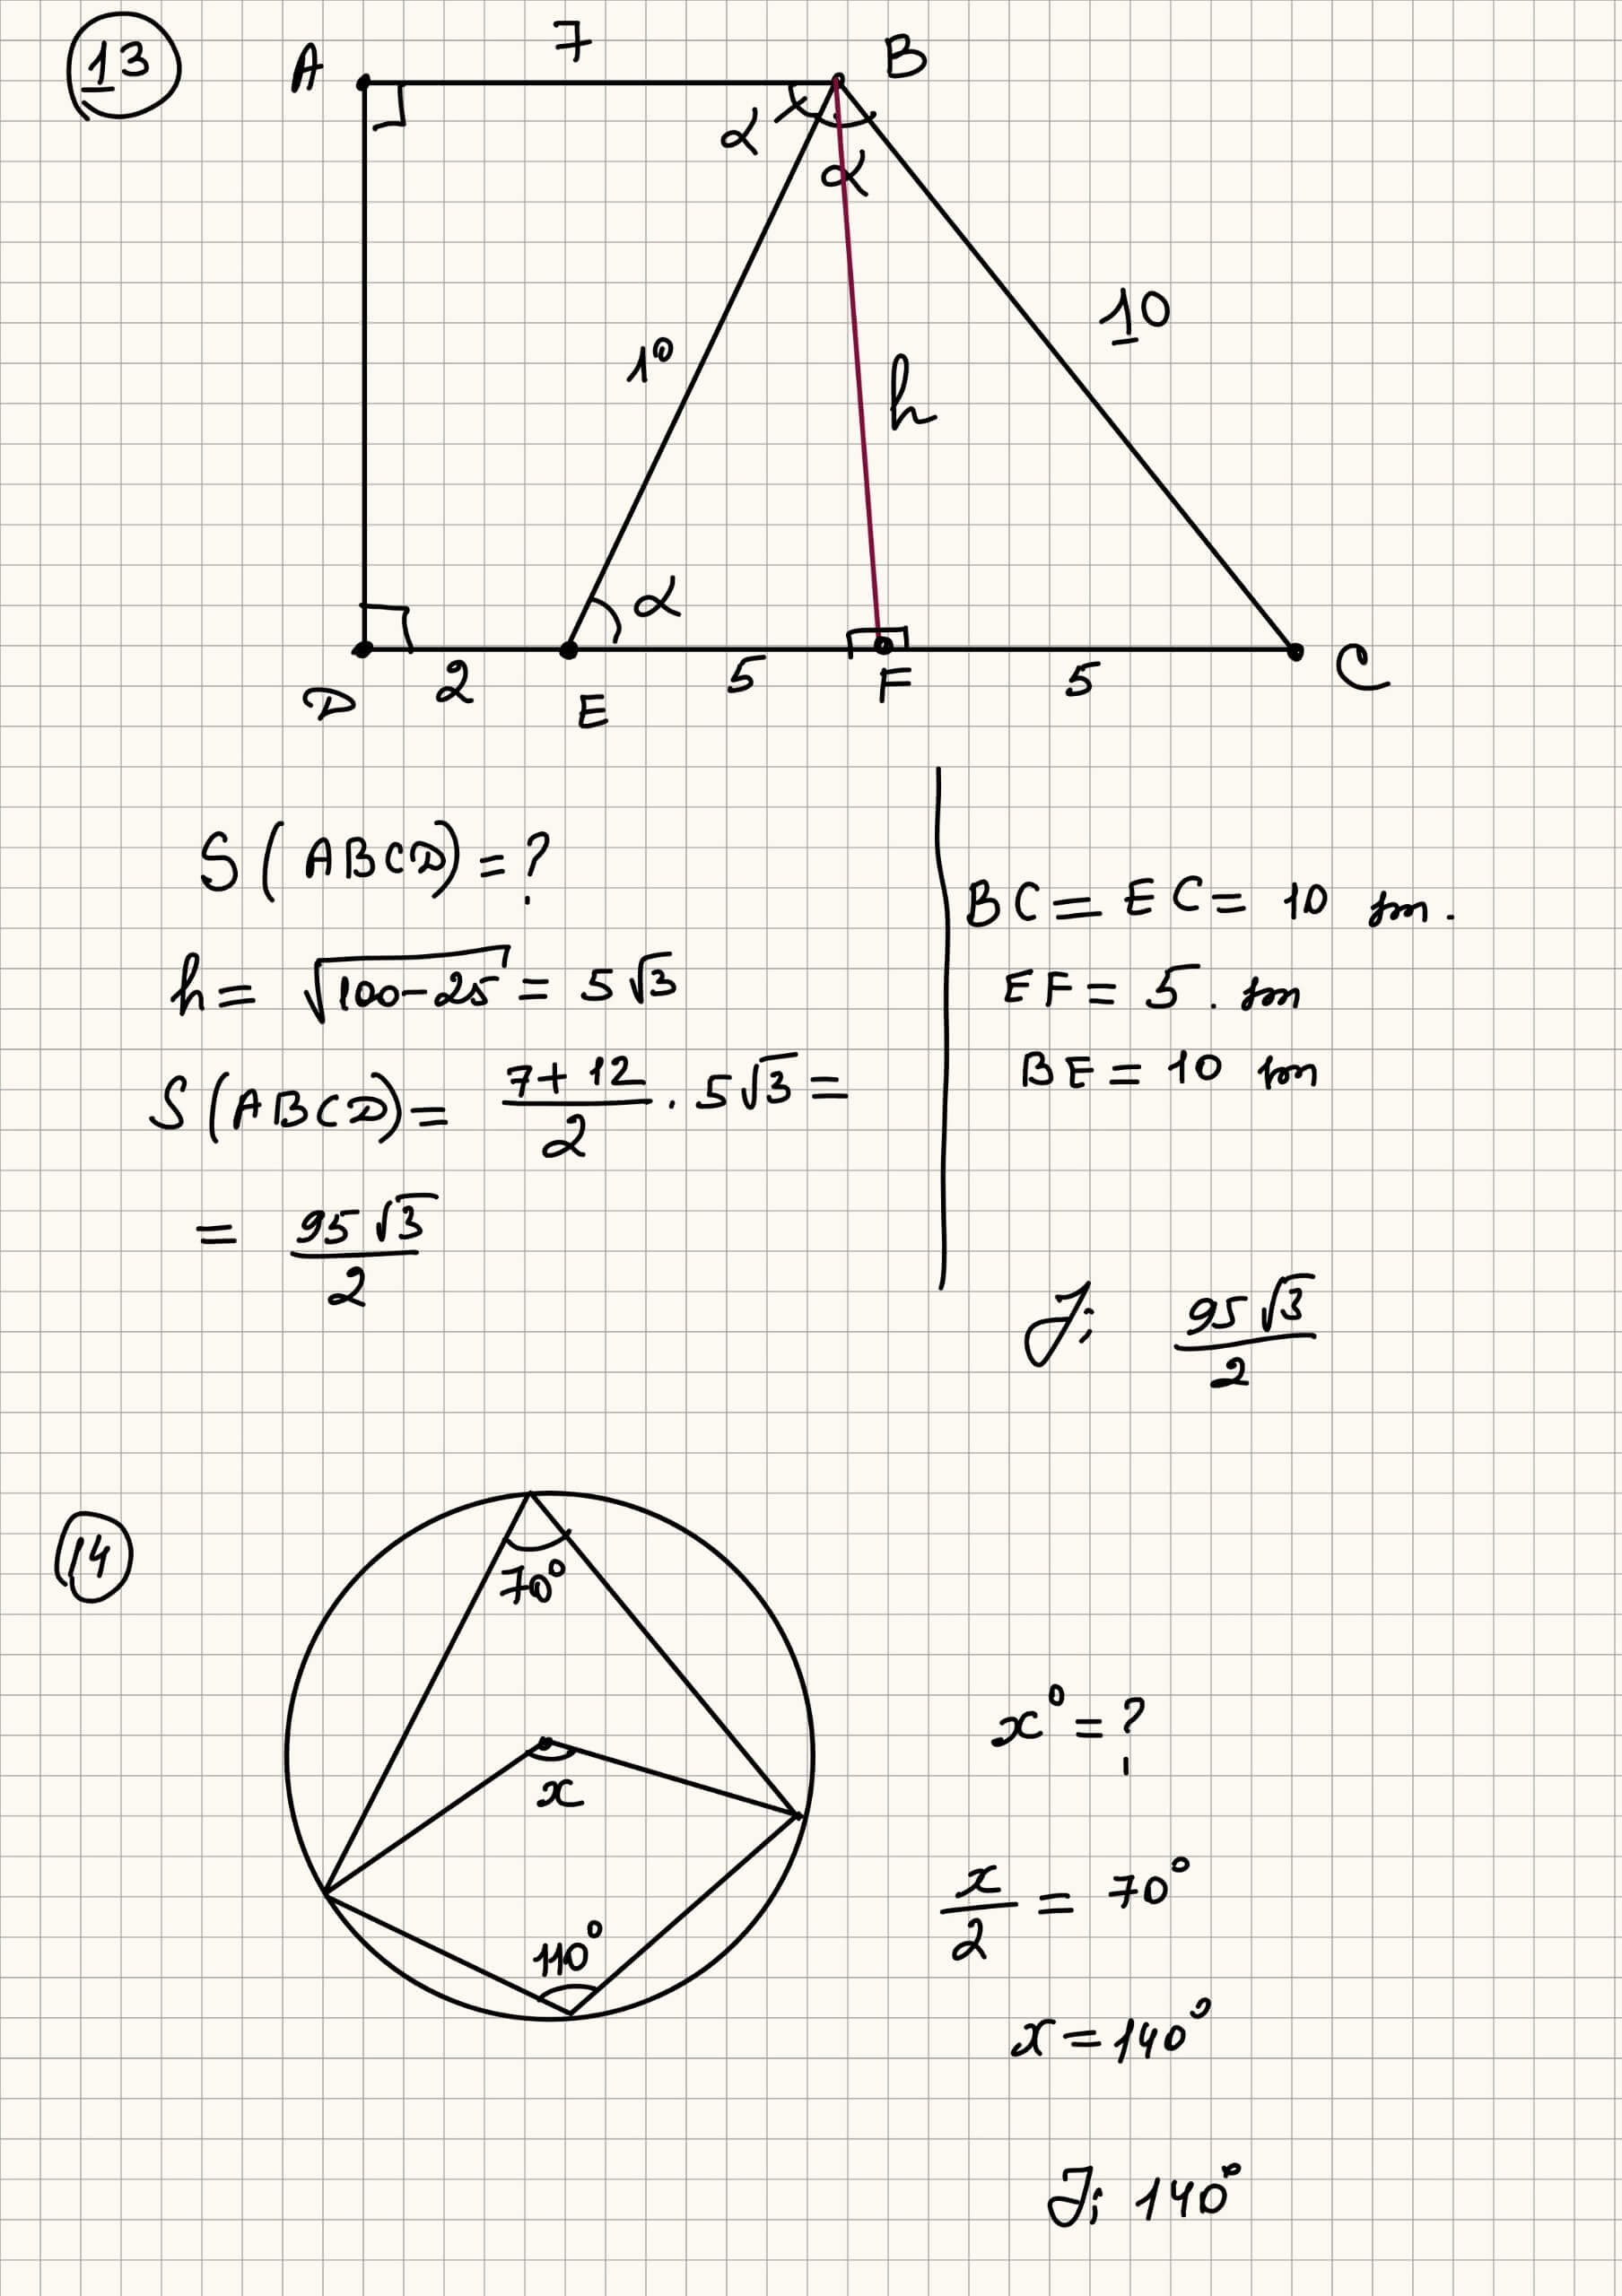 13
A 7 B
α
α
10
10
h
α
D 2 E 5 F 5 C
S(ABCD)=?
h = √(100-25) = 5√3
S(ABCD) = (7+12)/2 · 5√3 =
= 95√3/2
BC = EC = 10 sm.
EF = 5. sm
BE = 10 sm
J: 95√3/2
14
70°
x
110°
x° = ?
x/2 = 70°
x = 140°
J: 140°